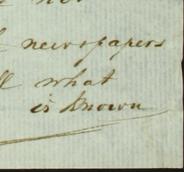 newspapers
what
is Known